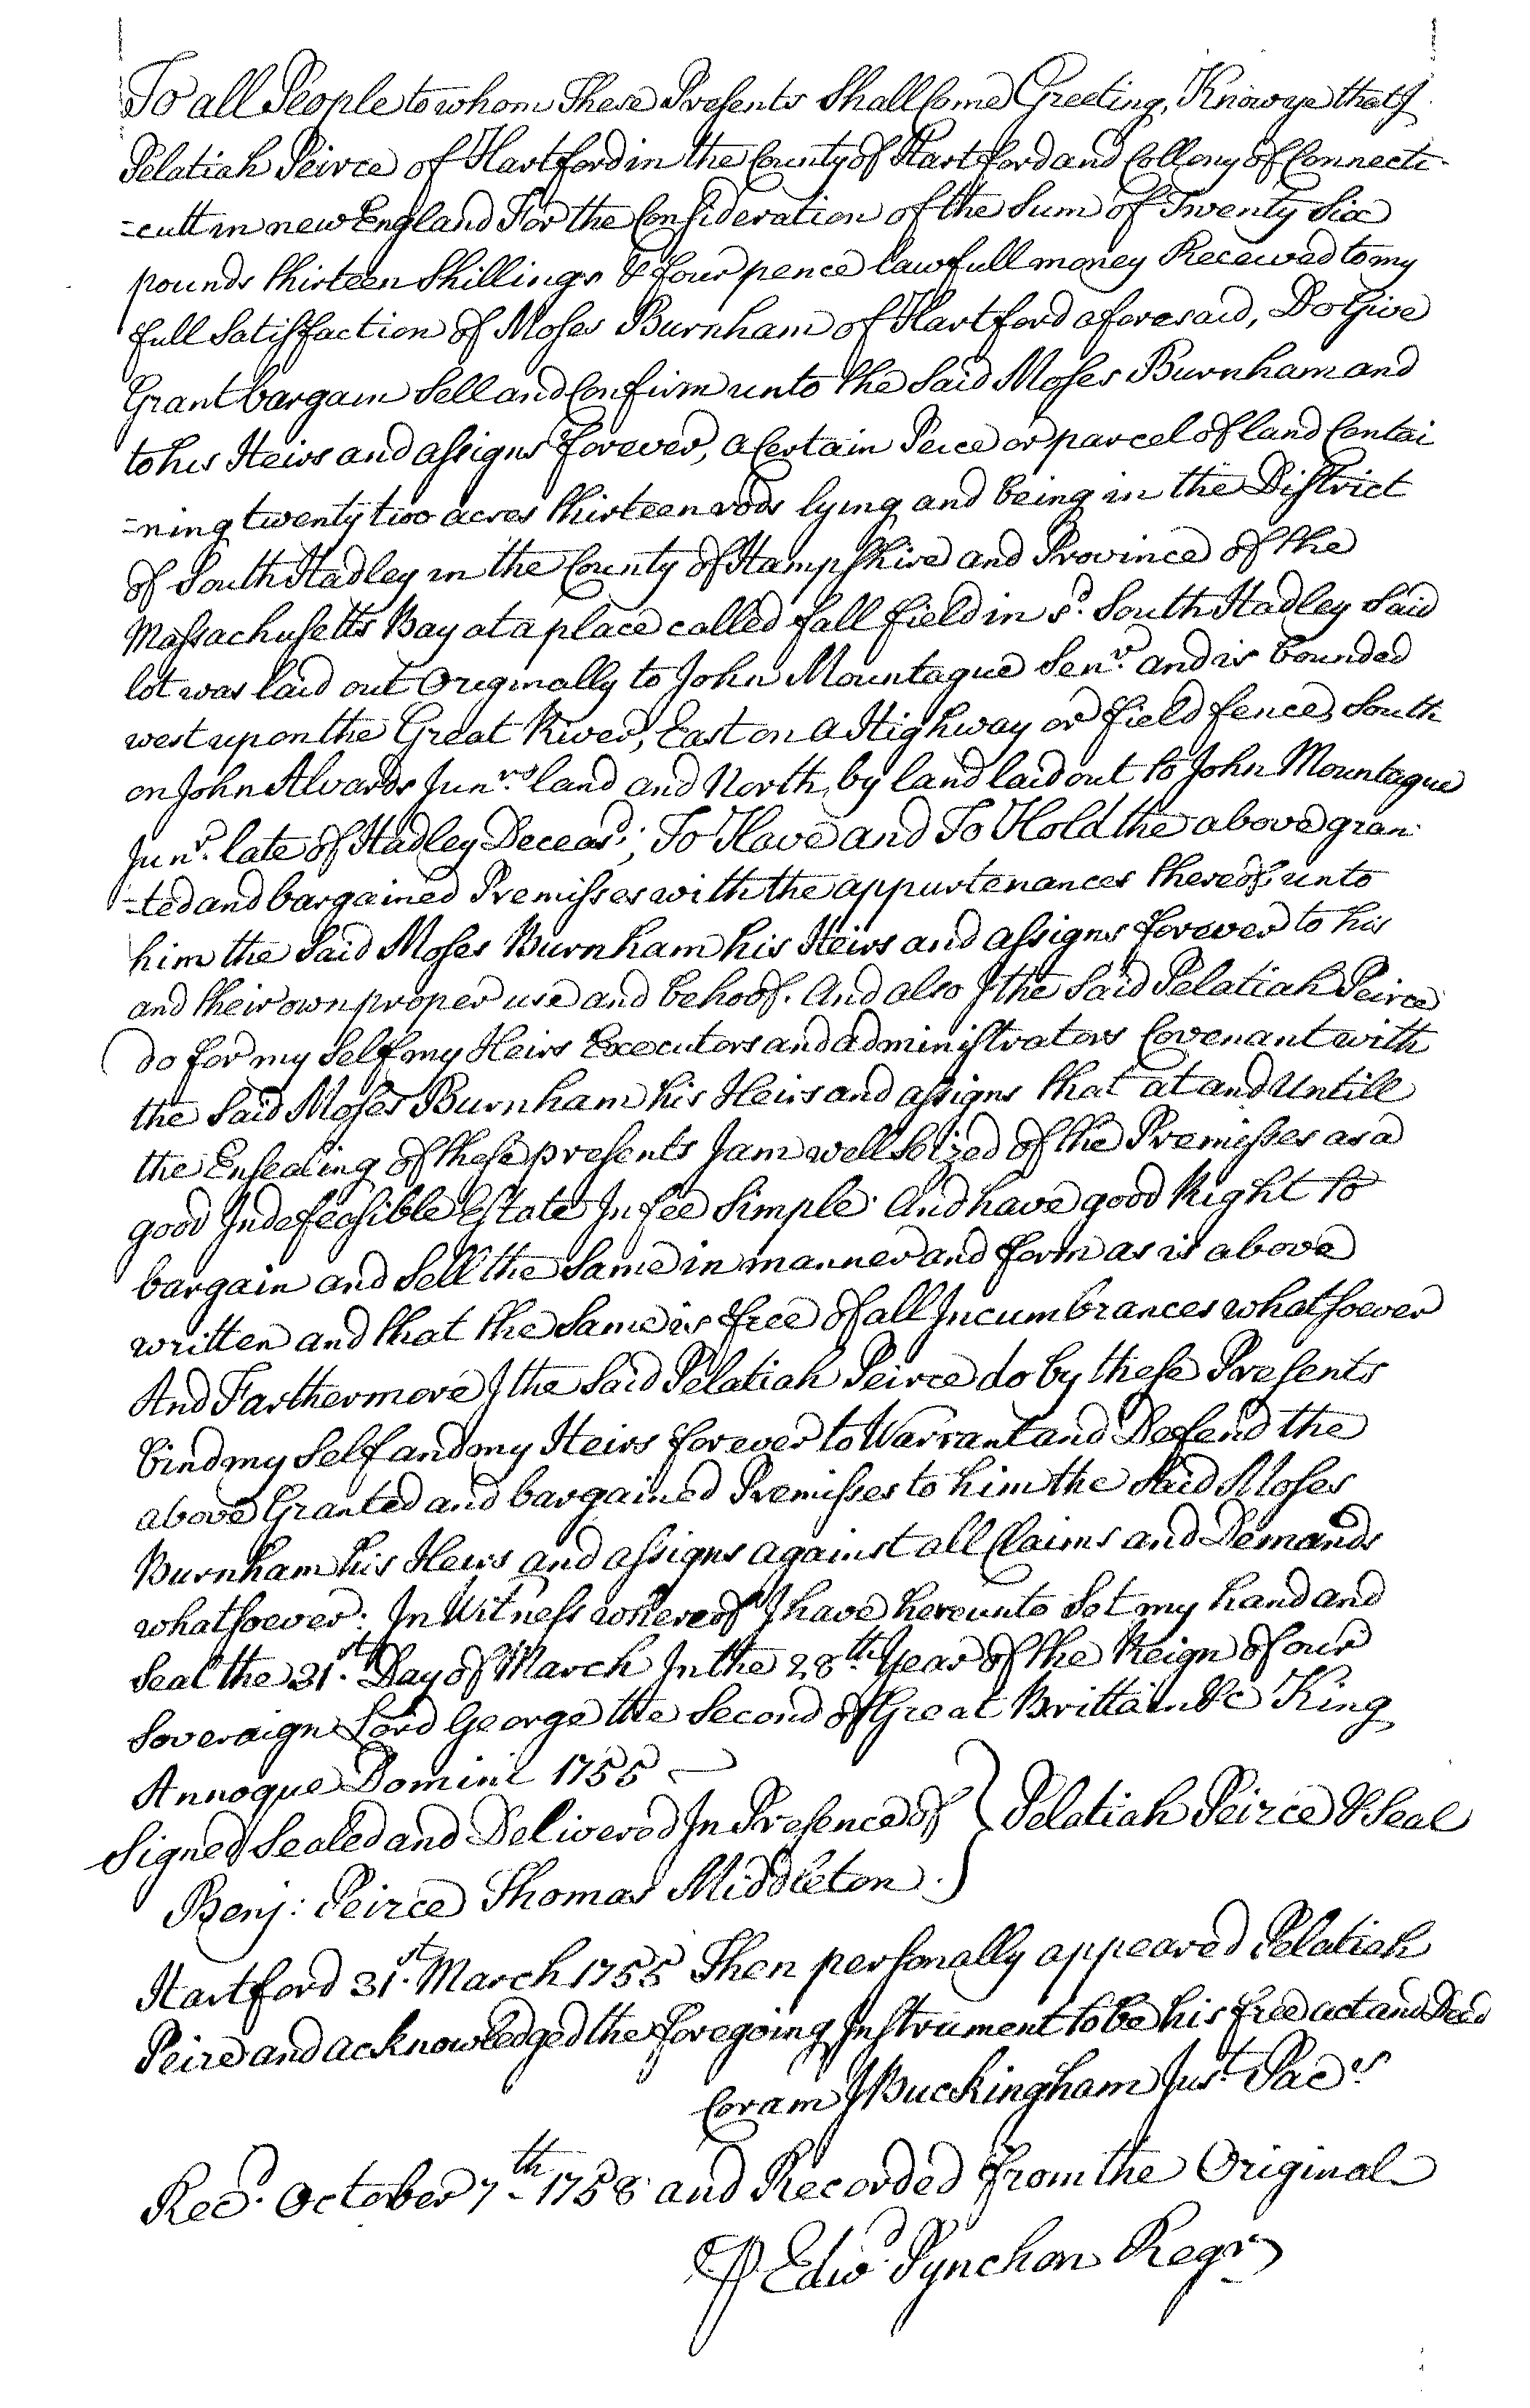 To all People to whom These Presents Shall Come Greeting, Know ye that I
Pelatiah Peirce of Hartford in the County of Hartford and Collony of Connecti-
=cutt in new England For the Consideration of the Sum of Twenty Six
pounds thirteen Shillings & four pence lawfull money Received to my
full Satisfaction of Moses Burnham of Hartford aforesaid, Do Give
Grant bargain Sell and Confirm unto the Said Moses Burnham and
to his Heirs and assigns forever, a Certain Peice or parcel of land Contai
=ning twenty two acres thirteen rods lying and being in the District
of South Hadley in the County of Hampshire and Province of the
Massachusetts Bay at a place called fall field in sd. South Hadley Said
lot was laid out Originally to John Mountague Senr. and is bounded
west upon the Great River, East on a Highway or field fence, South
on John Alvards Junrs. land and North, by land laid out to John Mountague
Junr. late of Hadley Deceasd.; To Have and To Hold the above gran
=ted and bargained Premisses with the appurtenances thereof unto
him the Said Moses Burnham his Heirs and assigns forever to his
and their own proper use and behoof. And also I the Said Pelatiah Peirce
do for my Self my Heirs Executors and administrators Covenant with
the Said Moses Burnham his Heirs and assigns that at and Untill
the Ensealing of these presents I am well Seized of the Premisses as a
good Indefeasible Estate In fee Simple. And have good Right to
bargain and Sell the Same in manner and form as is above
written and that the Same is free of all Incumbrances whatsoever
And Farthermore I the Said Pelatiah Peirce do by these Presents
bind my Self and my Heirs forever to Warrant and Defend the
above Granted and bargained Premisses to him the Said Moses
Burnham his Heirs and assigns against all Claims and Demands
whatsoever: In Witness whereof I have hereunto Set my hand and
Seal the 31st. Day of March In the 28th. Year of the Reign of our
Soveraign Lord George the Second of Great Brittain &c King
Annoque Domini 1755
Signed Sealed and Delivered In Presence of } Pelatiah Peirce & Seal
Benj: Peirce Thomas Middleton.
Hartford 31st. March 1755 Then personally appeared Pelatiah
Peirce and acknowledged the foregoing Instrument to be his free act and Deed
Coram J Buckingham Just. Pacs.
Recd. October 7th 1758 and Recorded from the Original
P Edwd. Pynchon Regr